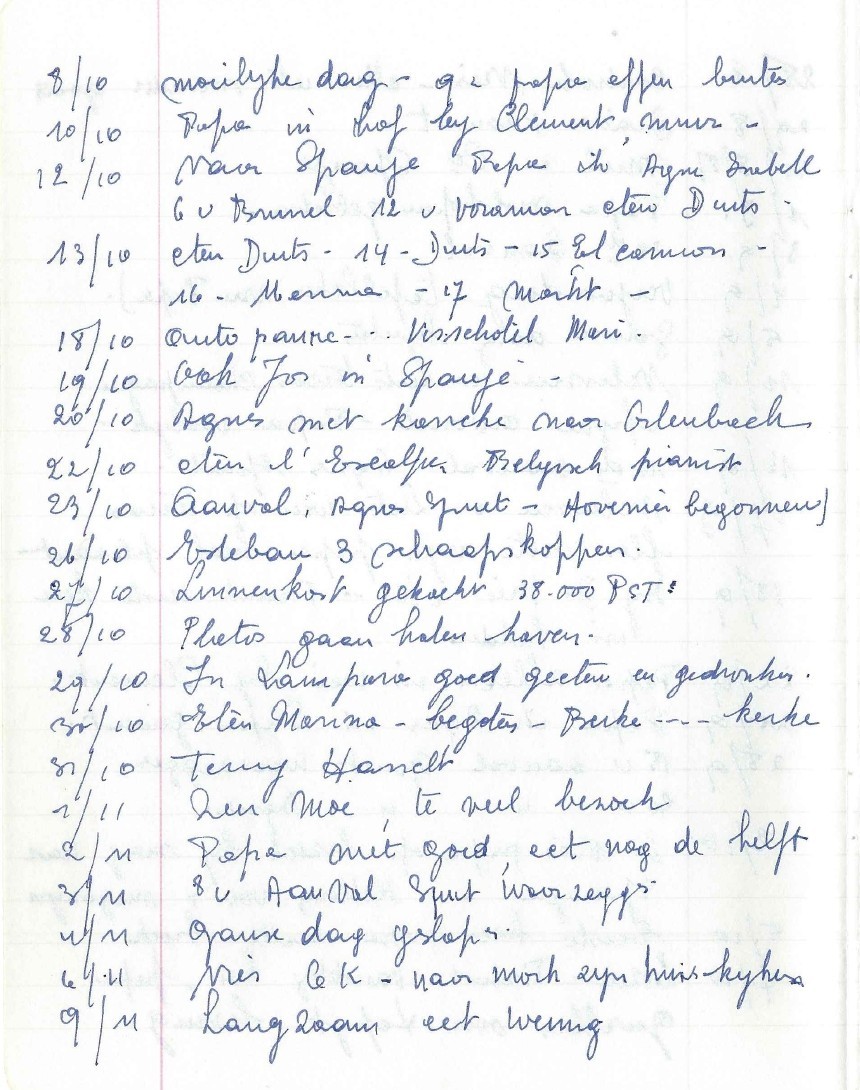 8/10 moeilyke dag - papa effen buiten
10/10 Papa in hof by Clement, muur -
12/10 Naar Spanje Papa Agnes
6 u Brussel 12 u eten Duits -
13/10 eten Duits - 14 - Duits - 15 El camion -
16 - - 17 Markt -
18/10 Auto panne - - - Visschotel Mari
19/10 Ook Jos in Spanje -
20/10 Agnes met naar
22/10 eten l' Belgisch pianist
23/10 Aanval. Agnes Spuit - Hovenier begonnen)
26/10 Esteban 3 schaapskoppen.
27/10 Linnenkast gekocht 38.000 PST:
28/10 Photos gaan halen haven.
29/10 In Lampara goed geeten en gedronken.
30/10 Eten Marina - - Berke - - - - kerke
31/10 Terug Hasselt
1/11 Zeer Moe, te veel bezoek
2/11 Papa niet goed, eet nog de helft
3/11 8 u AanVal Spuit
4/11 Ganse dag
6/11 CK - naar zyn huis kyken
9/11 Langzaam eet weinig